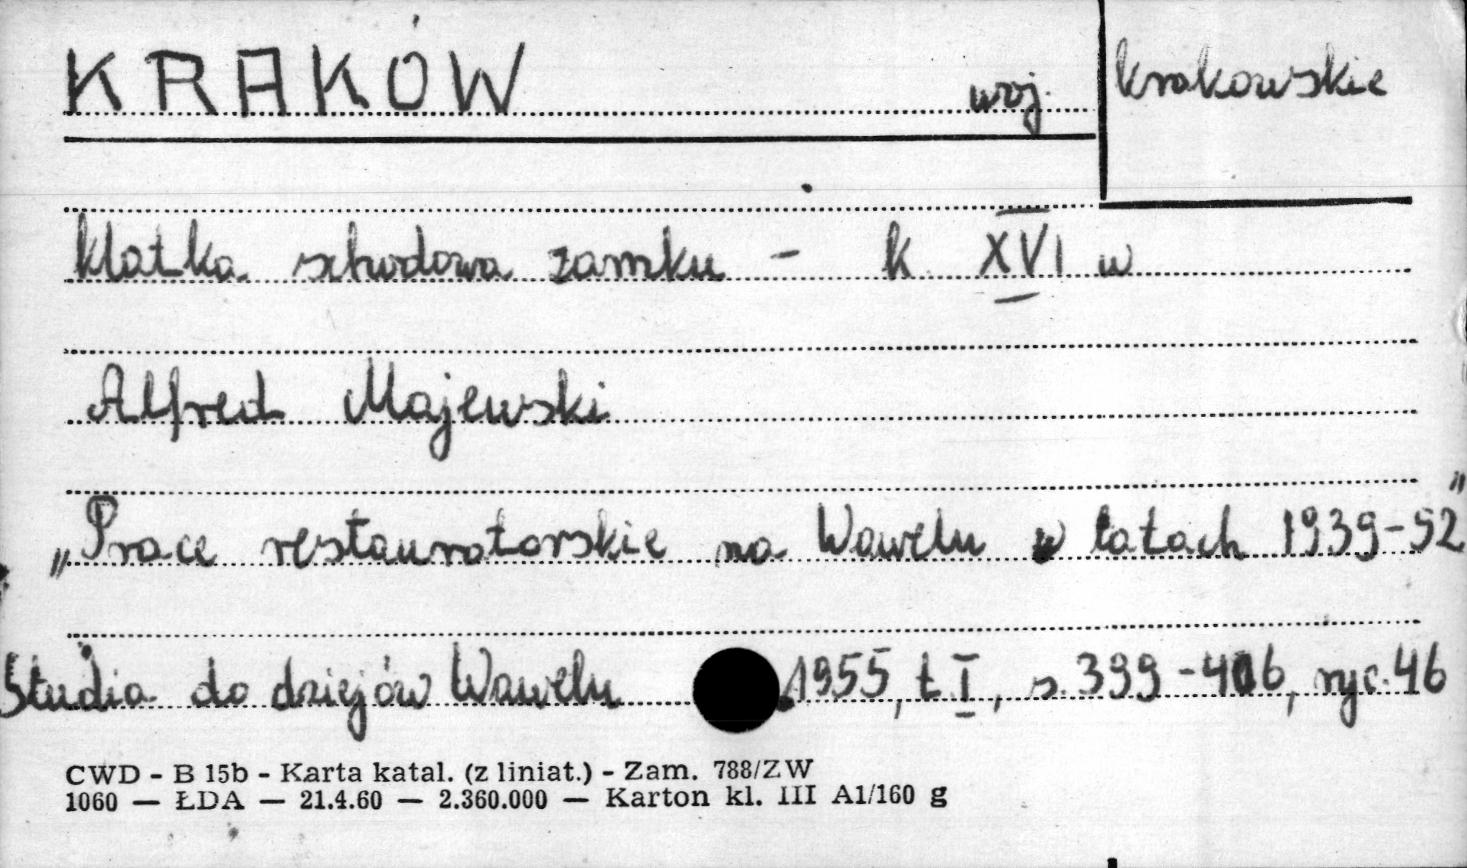 KRAKÓW woj. krakowskie
klatka schodowa zamku - k. XVI w
Alfred Majewski
„Prace restauratorskie na Wawelu w latach 1939-52"
Studia do dziejów Wawelu 1955, t I, s. 399-406, ryc. 46
CWD - B 15b - Karta katal. (z liniat.) - Zam. 788/ZW
1060 — ŁDA — 21.4.60 — 2.360.000 — Karton kl. III A1/160 g